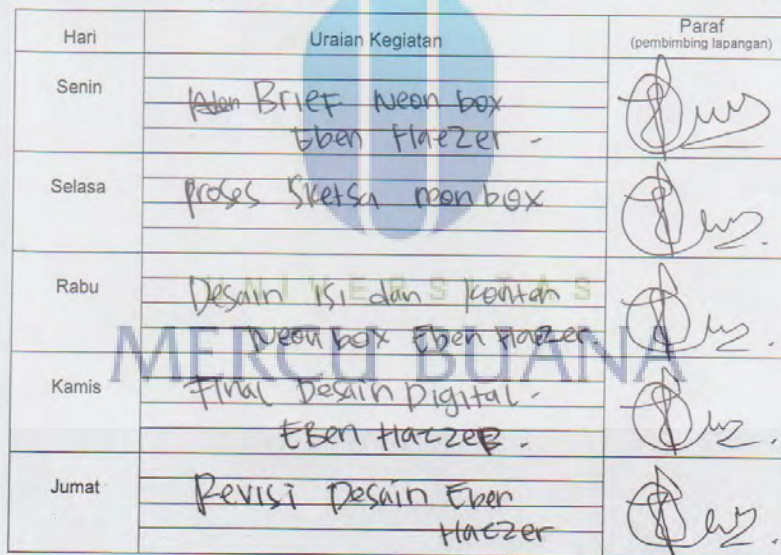 Hari Uraian Kegiatan Paraf
(pembimbing lapangan)
Senin Brief Neon box
Eben Haezer -
Selasa proses Sketsa neon box
Rabu Desain isi dan konten
Neon box Eben Haezer.
Kamis Final Desain Digital -
Eben Haezer .
Jumat Revisi Desain Eben
Haezer
UNIVERSITAS
MERCU BUANA